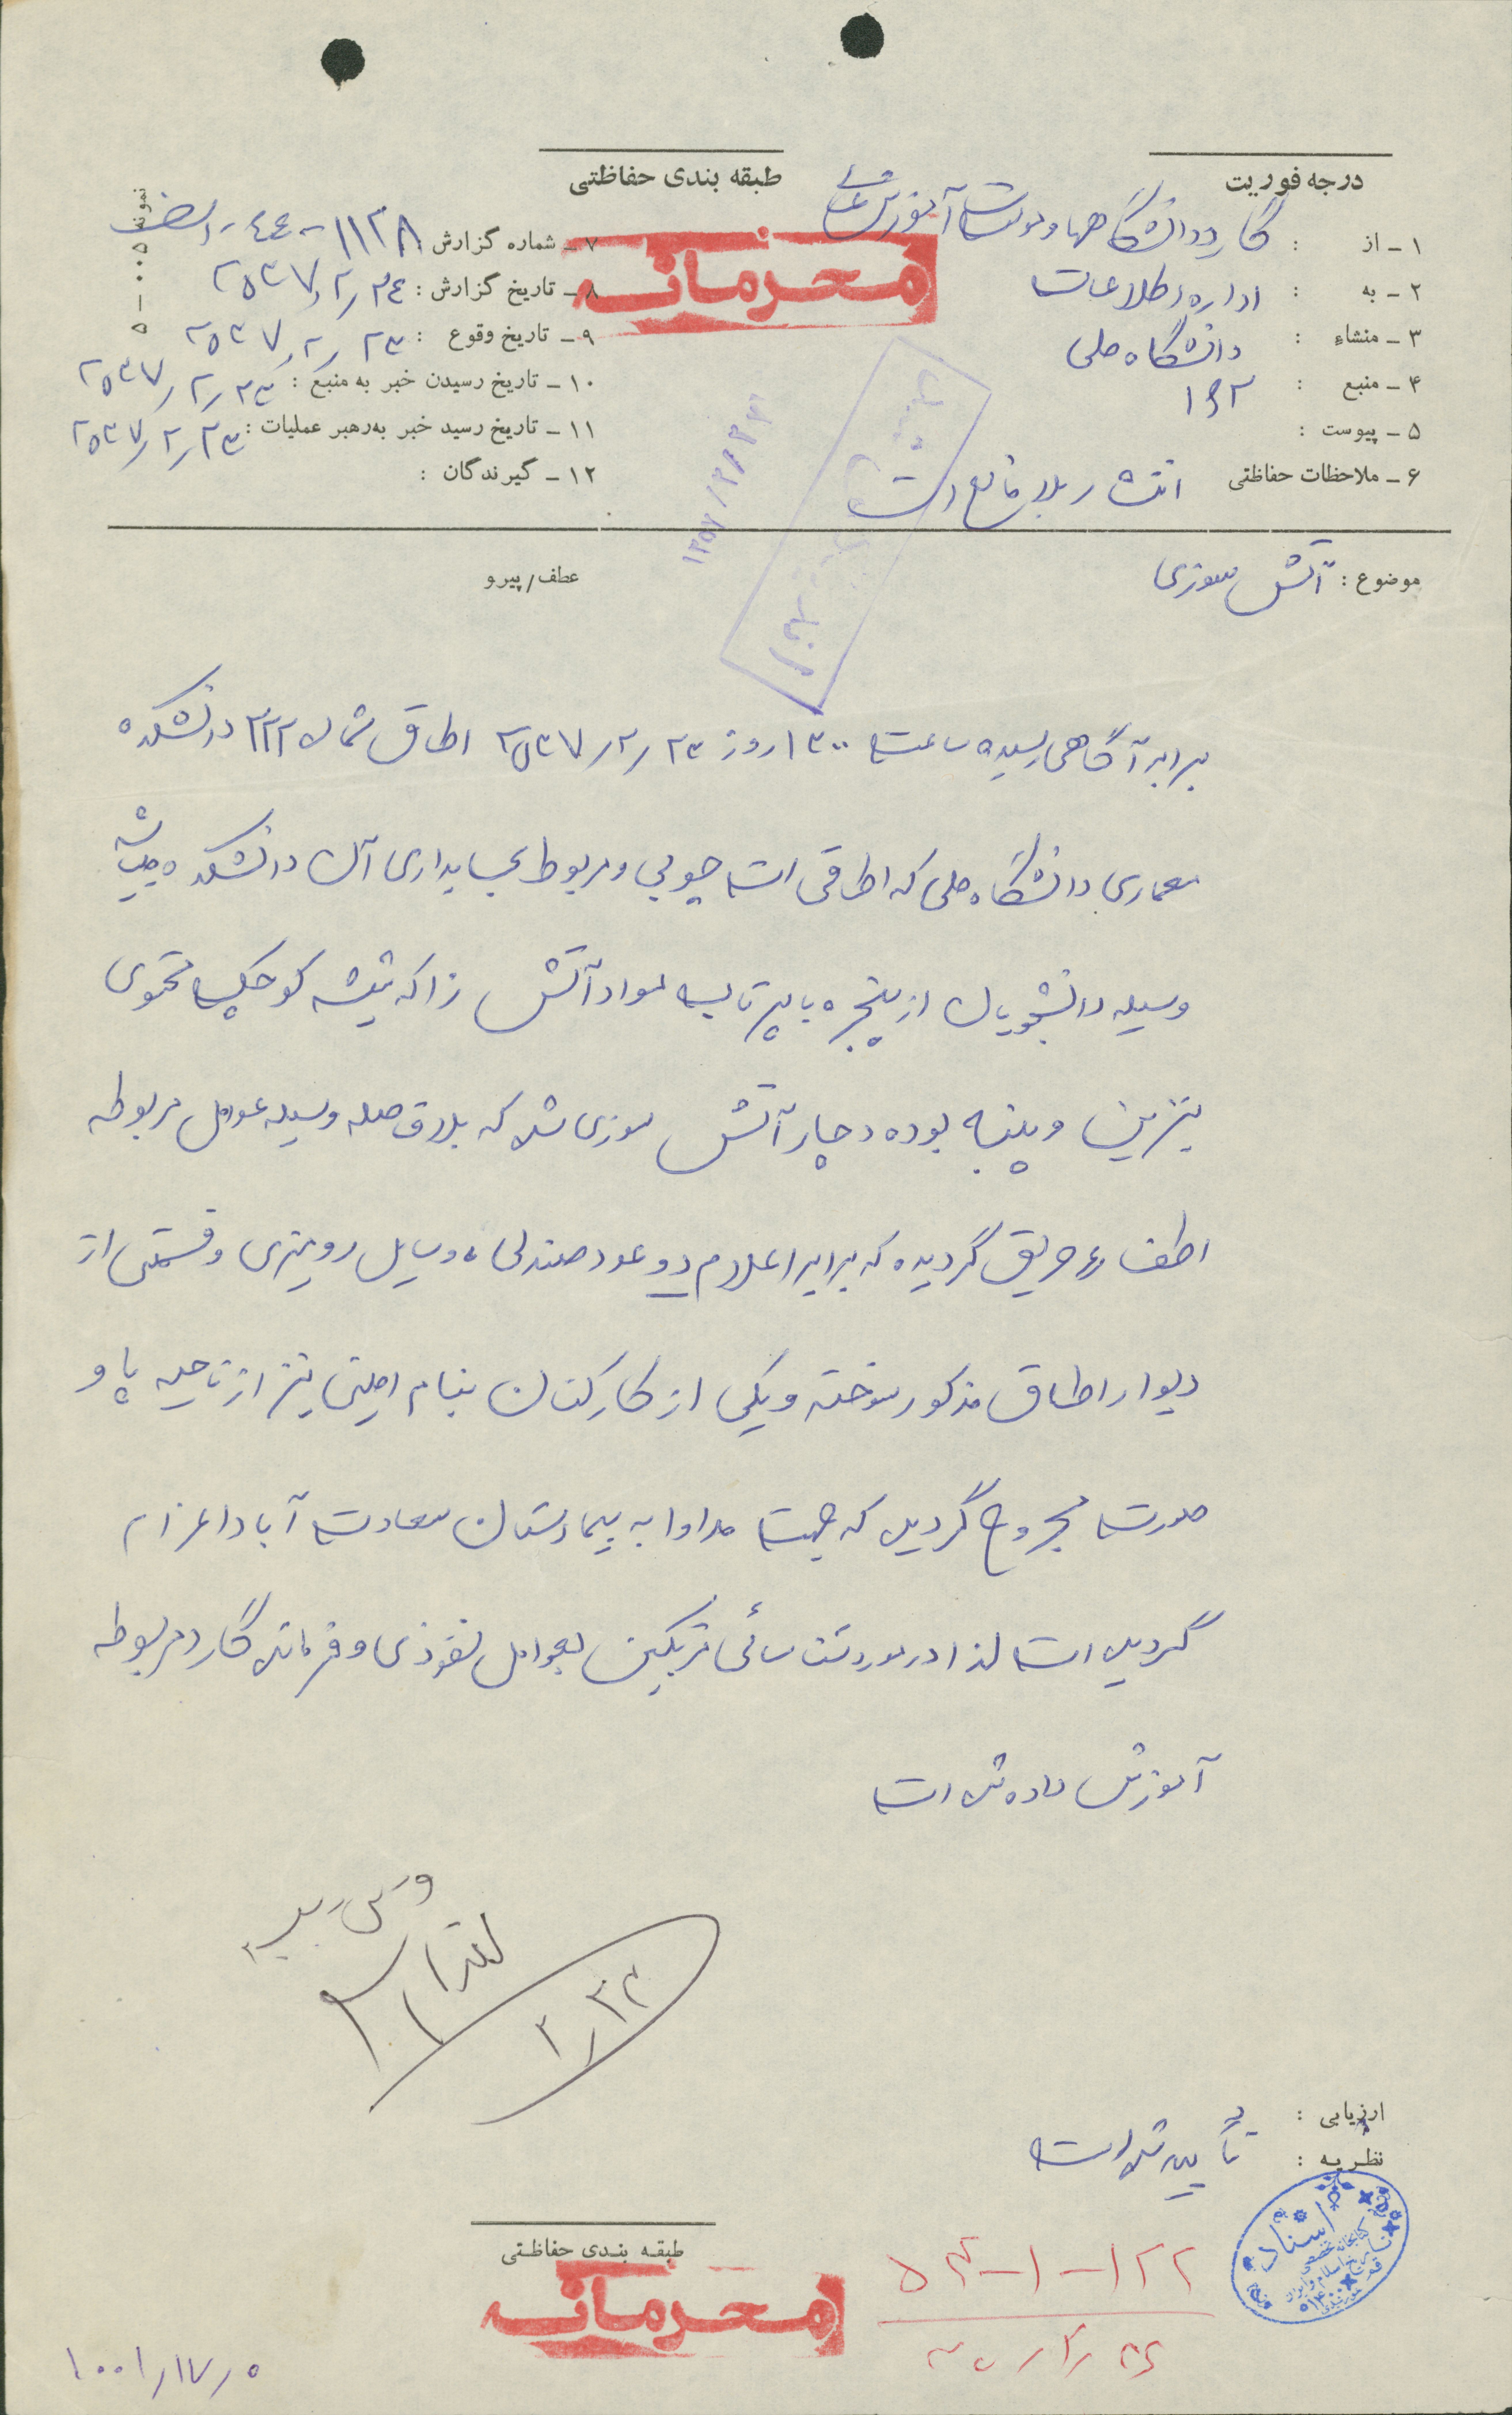 درجه فوریت
طبقه بندی حفاظتی
۱ - از : گارد دانشگاهها و موسسات آموزش عالی
۲ - به : اداره اطلاعات
۳ - منشاء : دانشگاه ملی
۴ - منبع : ۱۶۲
۵ - پیوست :
۶ - ملاحظات حفاظتی انتشار بلامانع است
محرمانه
۷ - شماره گزارش ۱۱۲۸-٤٤-الف
۸ - تاریخ گزارش : ۲۵۳۷/۲/۲٤
۹ - تاریخ وقوع : ۲۵۳۷/۲/۲۳
۱۰ - تاریخ رسیدن خبر به منبع : ۲۵۳۷/۲/۲۳
۱۱ - تاریخ رسید خبر به‌رهبر عملیات : ۲۵۳۷/۲/۲۳
۱۲ - گیرندگان :
موضوع : آتش سوزی
عطف/پیرو
برابر آگاهی رسیده ساعت ۱۳۰۰ روز ۲۵۳۷/۲/۲۳ اطاق شماره ۲۲۲ دانشکده
معماری دانشگاه ملی که اطاقی است چوبی و مربوط بحسابداری آن دانشکده میباشد
وسیله دانشجویان از پنجره با پرتاب مواد آتش زا که شیشه کوچک محتوی
بنزین و پنبه بوده دچار آتش سوزی شده که بلافاصله وسیله عوامل مربوطه
اطفاء حریق گردیده که برابر اعلام دو عدد صندلی و وسایل رومیزی و قسمتی از
دیوار اطاق مذکور سوخته و یکی از کارکنان بنام امینی نیز از ناحیه پا و
صورت مجروح گردیده که جهت مداوا به بیمارستان سعادت آباد اعزام
گردیده است لذا در مورد شناسائی مرتکبین بعوامل نفوذی و فرمانده گارد مربوطه
آموزش داده شده است
۲/۲۴
ارزیابی :
نظریه : تأیید شده است
طبقه بندی حفاظتی
محرمانه
اسناد
۱۰۰۱/۱۷/۵